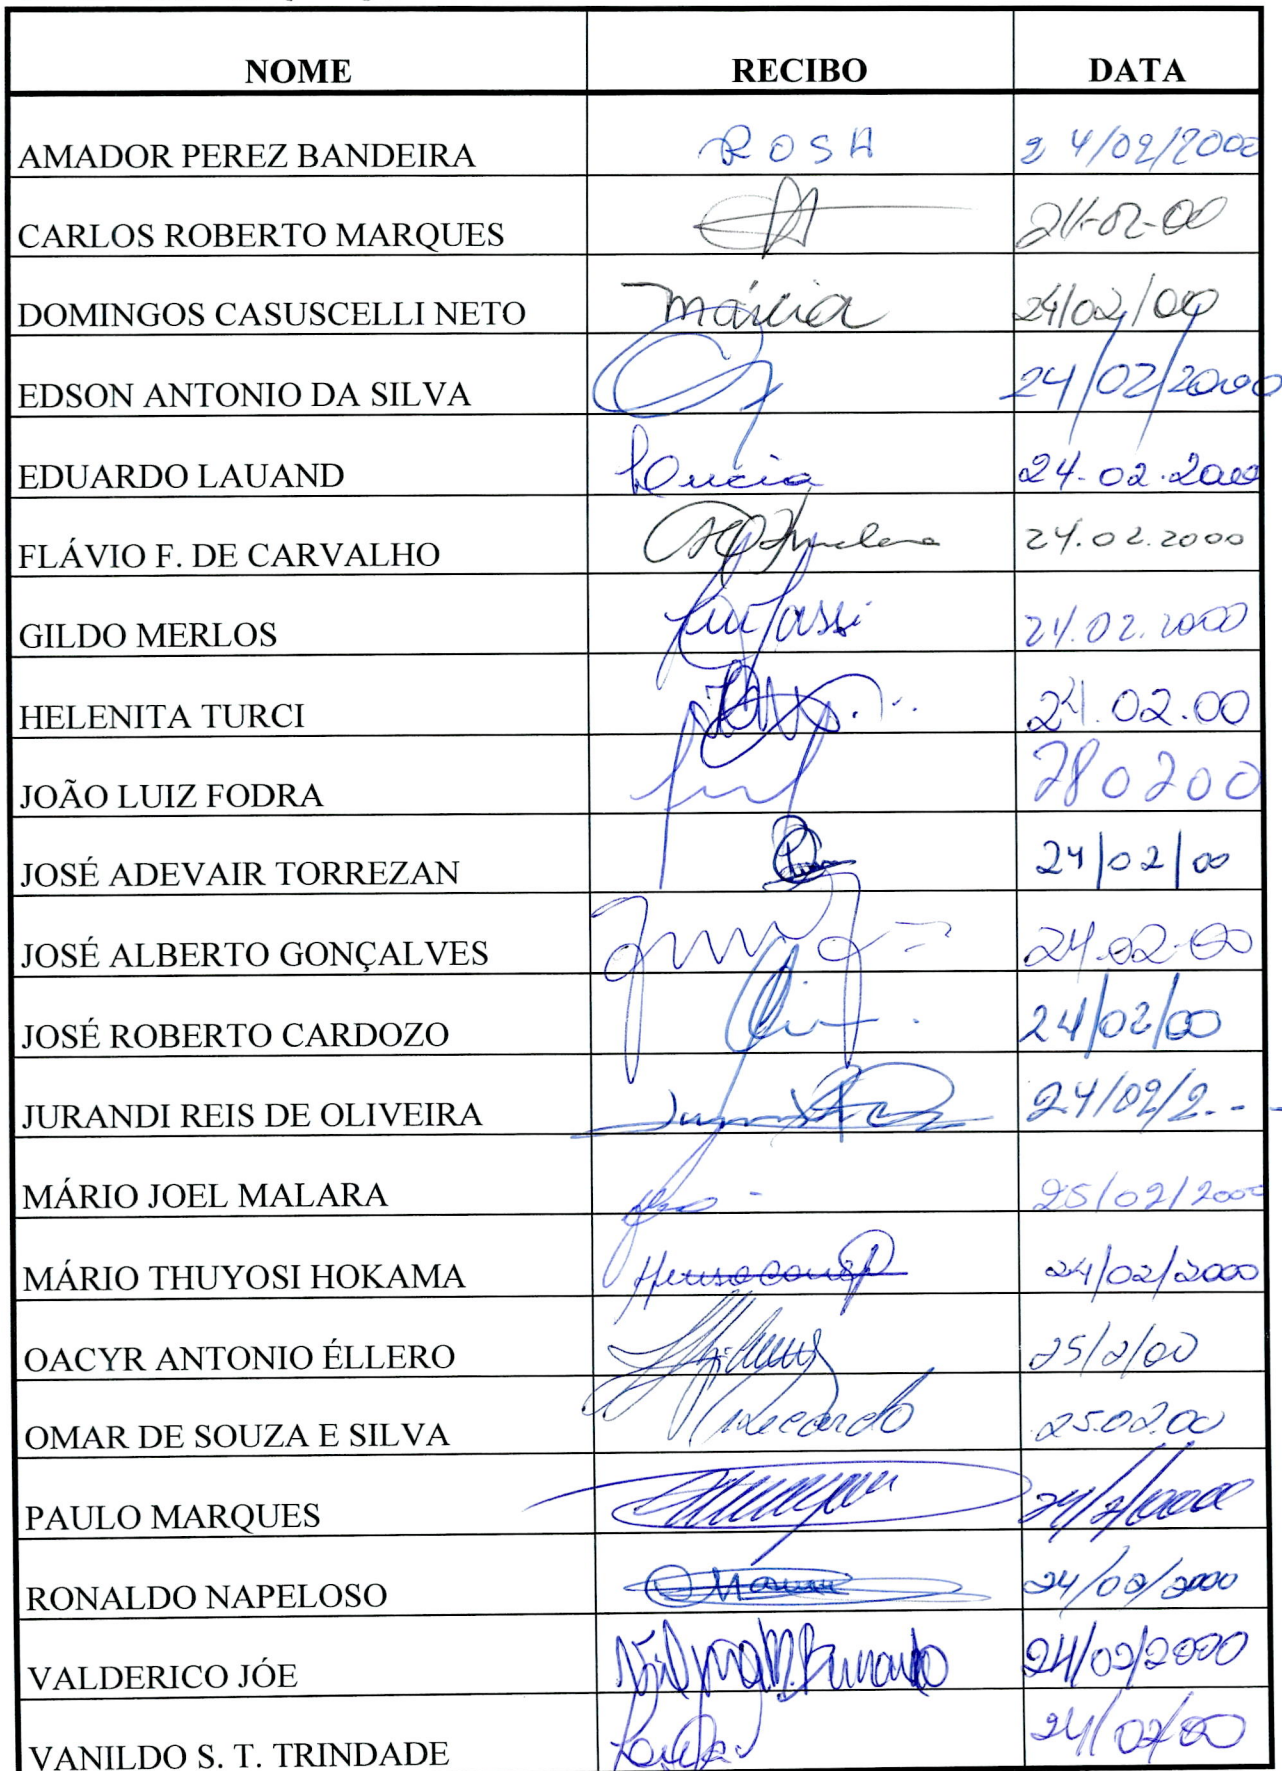 NOME RECIBO DATA
AMADOR PEREZ BANDEIRA ROSA 24/02/2000
CARLOS ROBERTO MARQUES 24-02-00
DOMINGOS CASUSCELLI NETO Márcia 24/02/00
EDSON ANTONIO DA SILVA 24/02/2000
EDUARDO LAUAND Lucia 24.02.2000
FLÁVIO F. DE CARVALHO 24.02.2000
GILDO MERLOS 24.02.2000
HELENITA TURCI 24.02.00
JOÃO LUIZ FODRA 280200
JOSÉ ADEVAIR TORREZAN 24/02/00
JOSÉ ALBERTO GONÇALVES 24.02.00
JOSÉ ROBERTO CARDOZO 24/02/00
JURANDI REIS DE OLIVEIRA 24/02/2...
MÁRIO JOEL MALARA 25/02/2000
MÁRIO THUYOSI HOKAMA 24/02/2000
OACYR ANTONIO ÉLLERO 25/2/00
OMAR DE SOUZA E SILVA 25.02.00
PAULO MARQUES
RONALDO NAPELOSO 24/02/2000
VALDERICO JÓE 24/02/2000
VANILDO S. T. TRINDADE 24/02/00